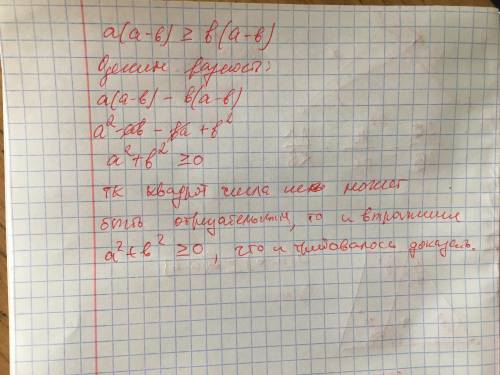 a(a-b) ≥ b(a-b)
Оценим разность:
a(a-b) - b(a-b)
a² - ab - ba + b²
a² + b² ≥ 0
тк квадрат числа не может
быть отрицательным, то и
a² + b² ≥ 0, что и требовалось доказать.